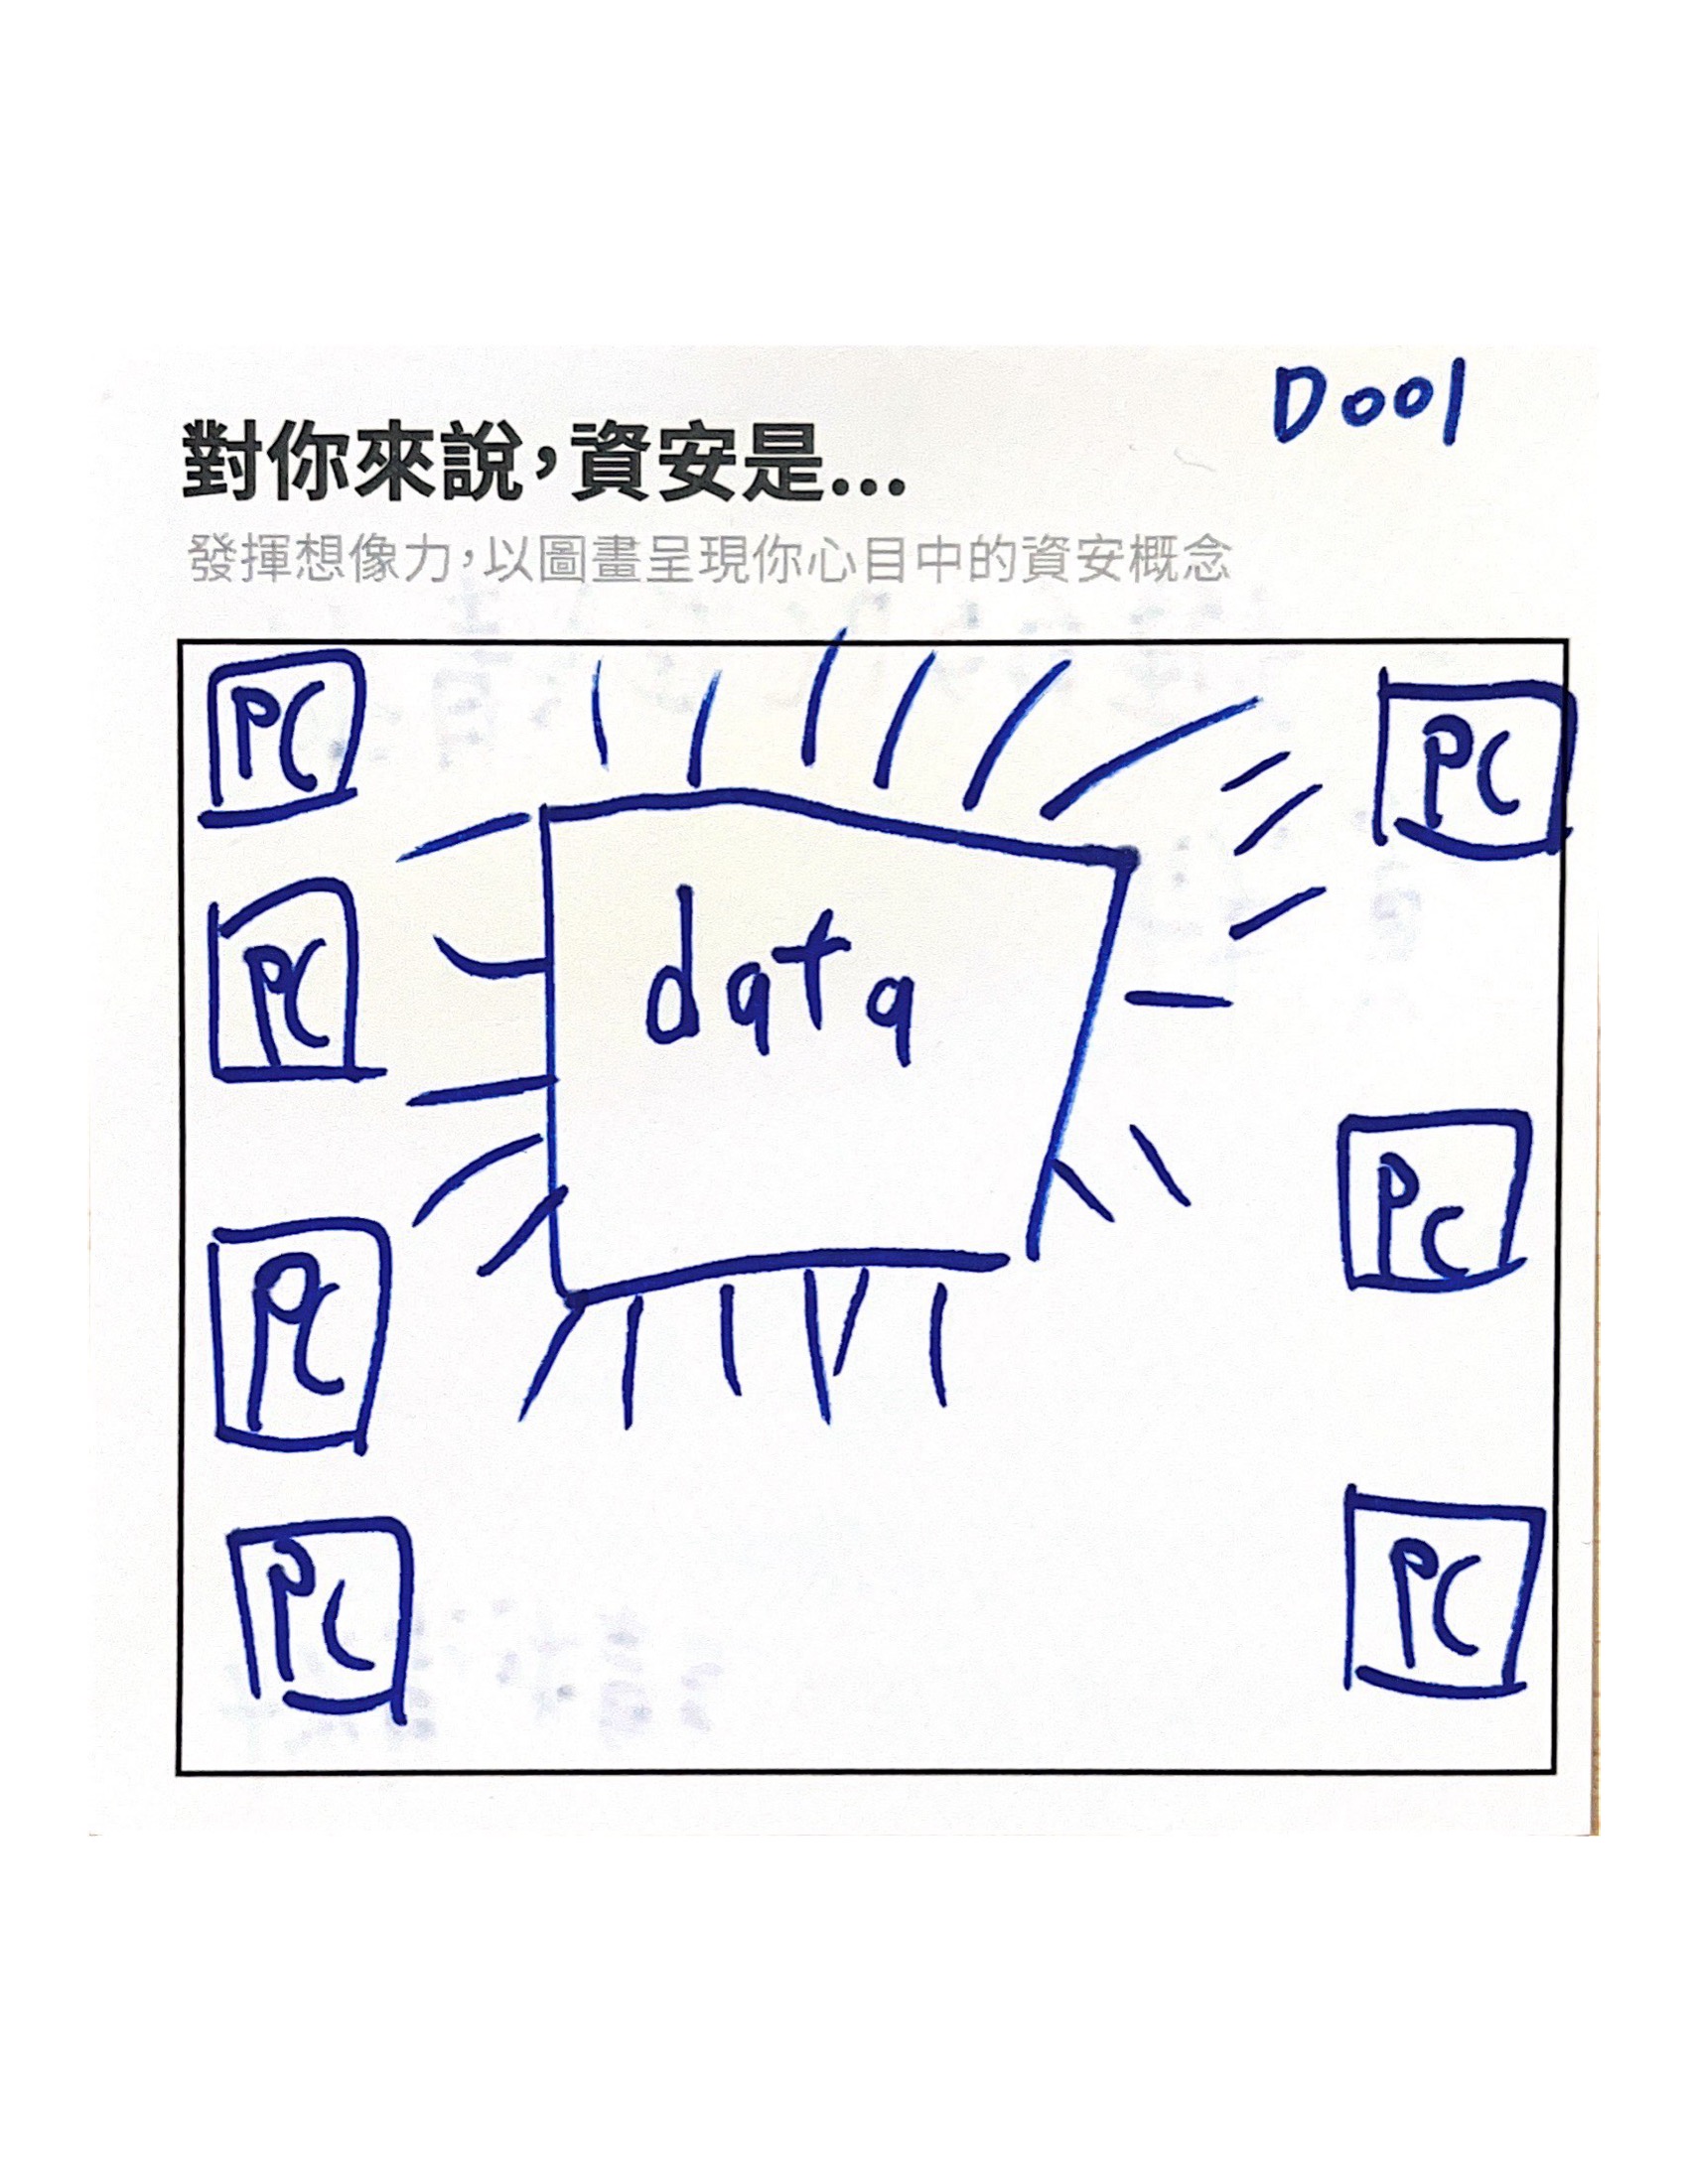 D001
對你來說，資安是...
發揮想像力，以圖畫呈現你心目中的資安概念
PC
PC
PC
data
PC
PC
PC
PC